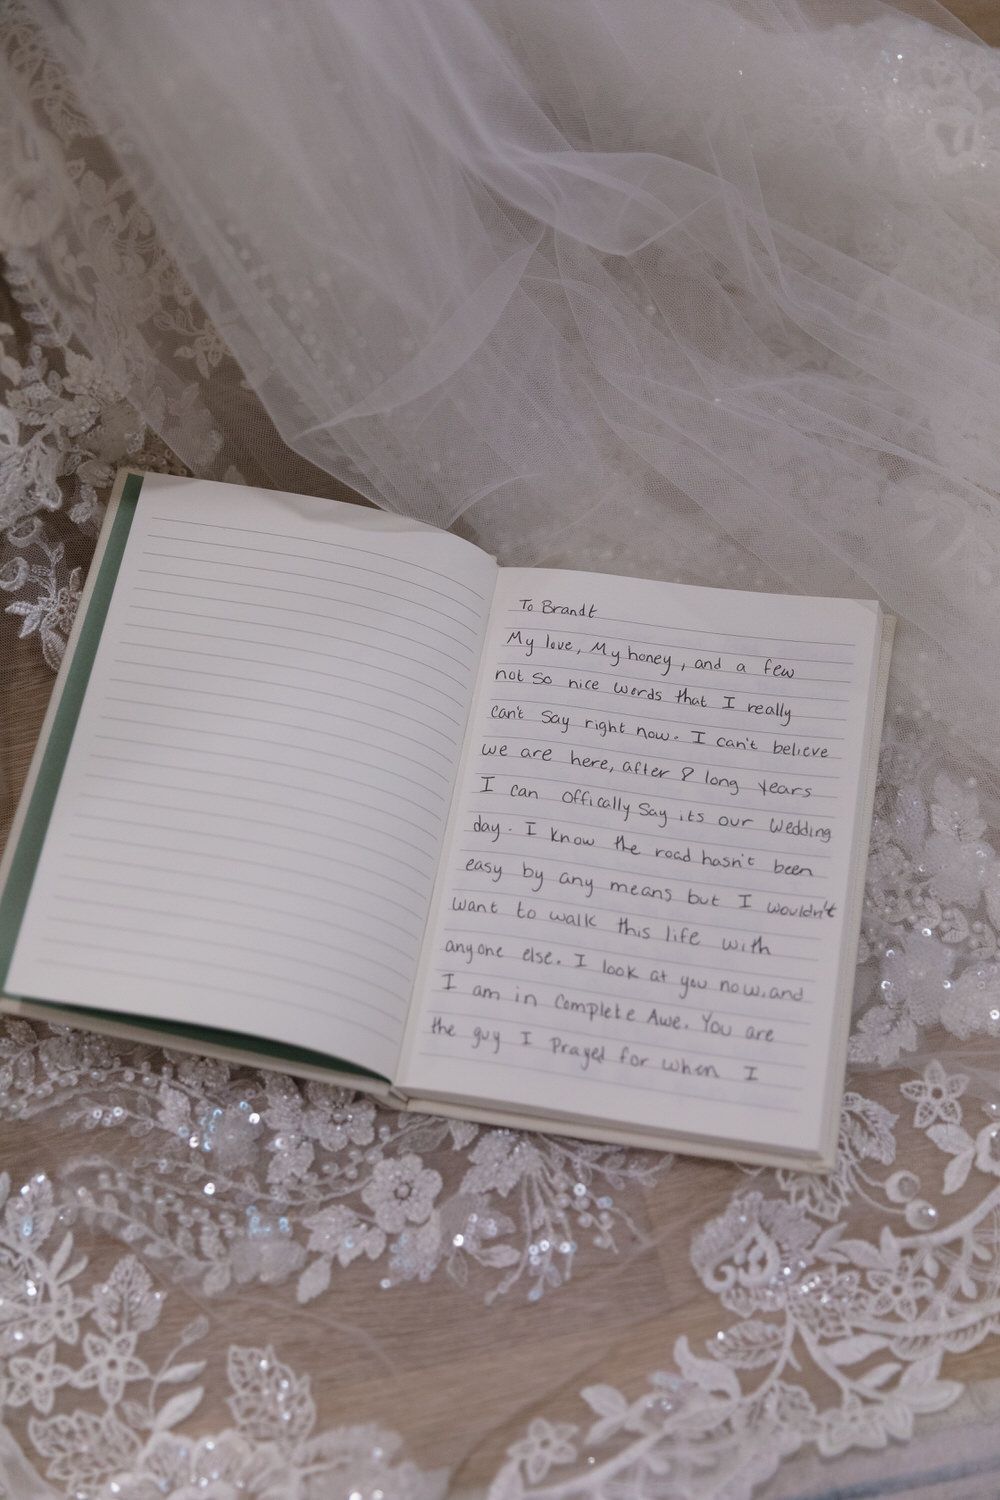 To Brandt
My love, My honey, and a few
not so nice words that I really
can't say right now. I can't believe
we are here, after 8 long years
I can offically say its our wedding
day. I know the road hasn't been
easy by any means but I wouldn't
want to walk this life with
anyone else. I look at you now, and
I am in complete Awe. You are
the guy I prayed for when I